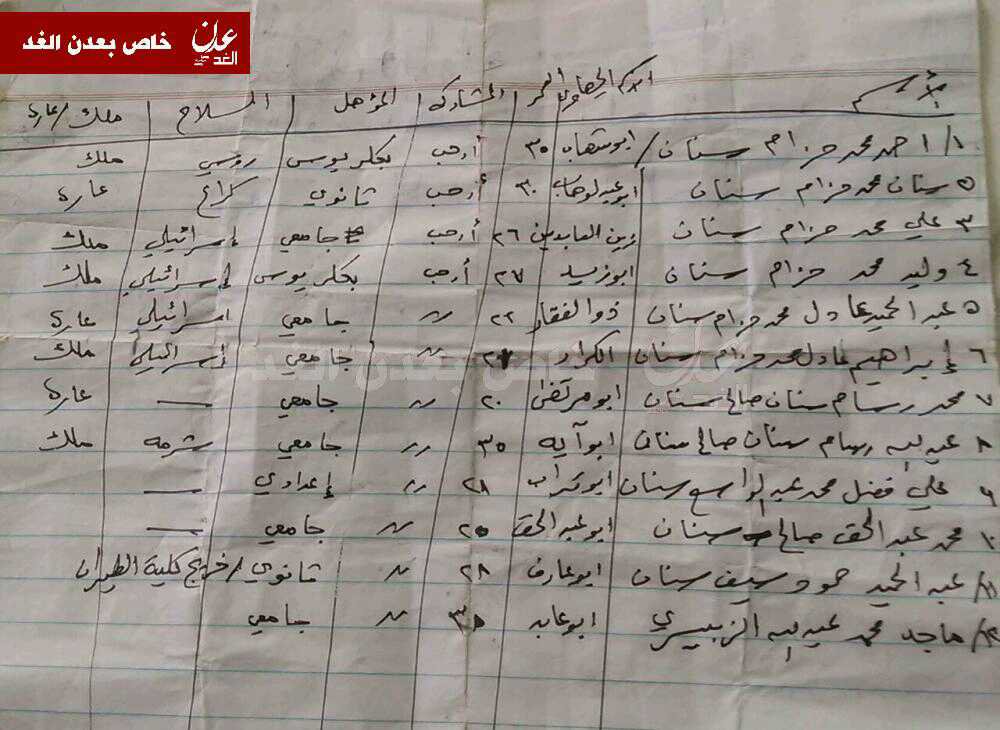 خاص بعدن الغد عدن الغد
الأسم الاسم الجهادي العمر المشاركه المؤهل السلاح ملك/عاره
١/ احمد محمد حزام سنان ابوشهاب ٣٥ أرحب بكلريوس روسي ملك
٥ سنان محمد حزام سنان ابوعبدلوهاب ٣٠ أرحب ثانوي كراع عاره
٣ علي محمد حزام سنان زين العابدين ٢٦ أرحب جامعي إسرائيلي ملك
٤ وليد محمد حزام سنان ابوزيد ٢٧ أرحب بكلريوس إسرائيلي ملك
٥ عبد الحميد عادل محمد حزام سنان ذو الفقار ٢٢ 〃 جامعي اسرائيلي عاره
٦ إبراهيم عادل محمد حزام سنان الكرار 〃 جامعي إسرائيلي ملك
٧ محمد رسام سنان صالح سنان ابومرتضى ٢٠ 〃 جامعي — عاره
٨ عبدالله رسام سنان صالح سنان ابوآيه ٣٥ 〃 جامعي شرمه ملك
٩ علي فضل محمد عبدالواسع سنان ابوتراب ٢٨ 〃 إعدادي —
١٠ محمد عبد الحق صالح سنان ابوعبدالحق ٢٥ 〃 جامعي —
١١/ عبد الحميد حمود سيف سنان ابوعارف ٢٨ 〃 ثانوي/خريج كلية الطيران
١٢/ ماجد محمد عبدالله الزبيري ابوعابد ٣٥ 〃 جامعي
خاص بعدن الغد